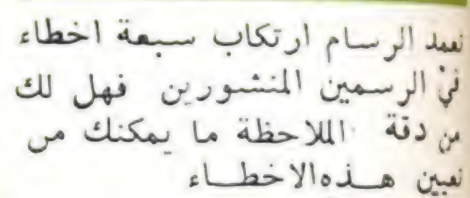 تعمد الرسام ارتكاب سبعة اخطاء
في الرسمين المنشورين فهل لك
من دقة الملاحظة ما يمكنك من
تعيين هذه الاخطاء